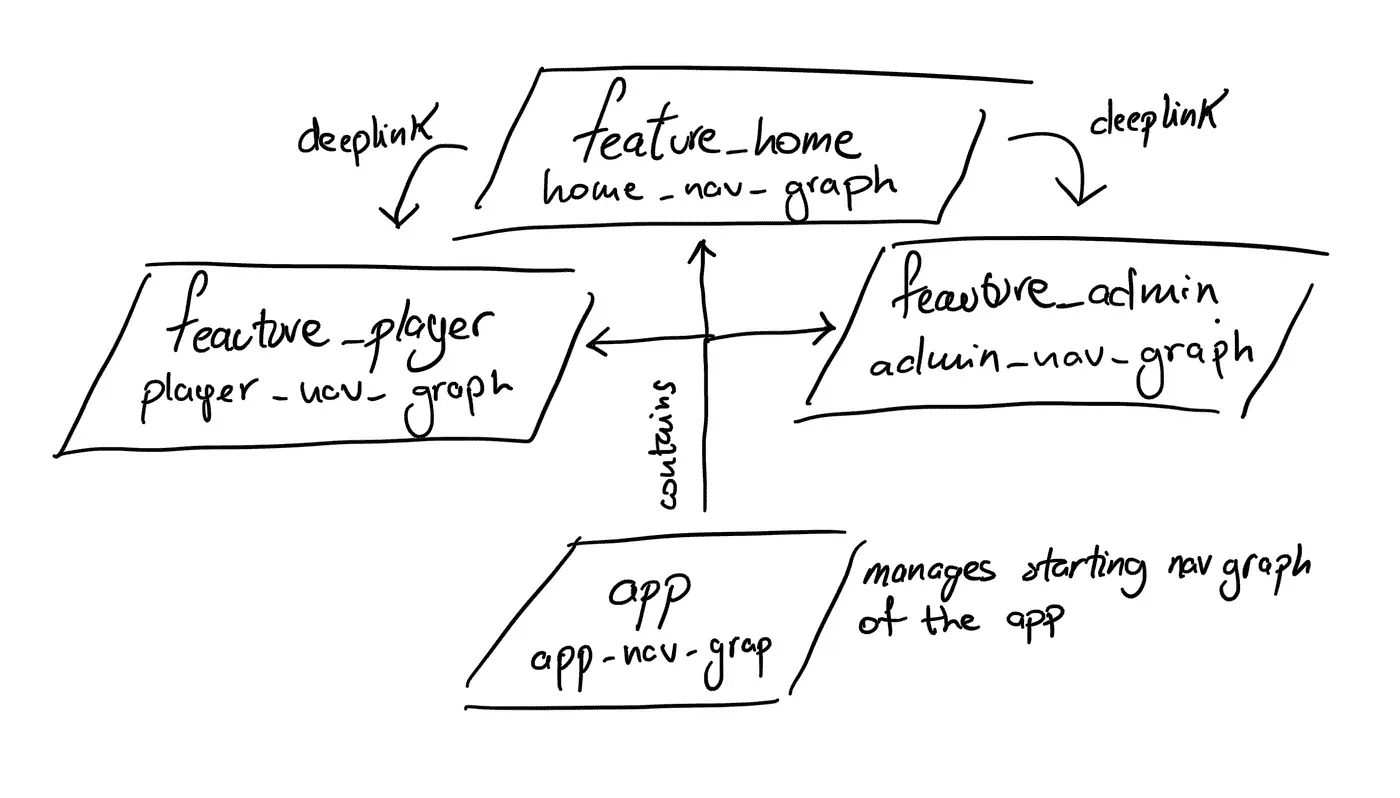 deeplink
feature_home
home_nav_graph
deeplink
feacture_player
player_nav_graph
feauture_admin
admin_nav_graph
contains
app
app_nav_grap
manages starting nav graph
of the app